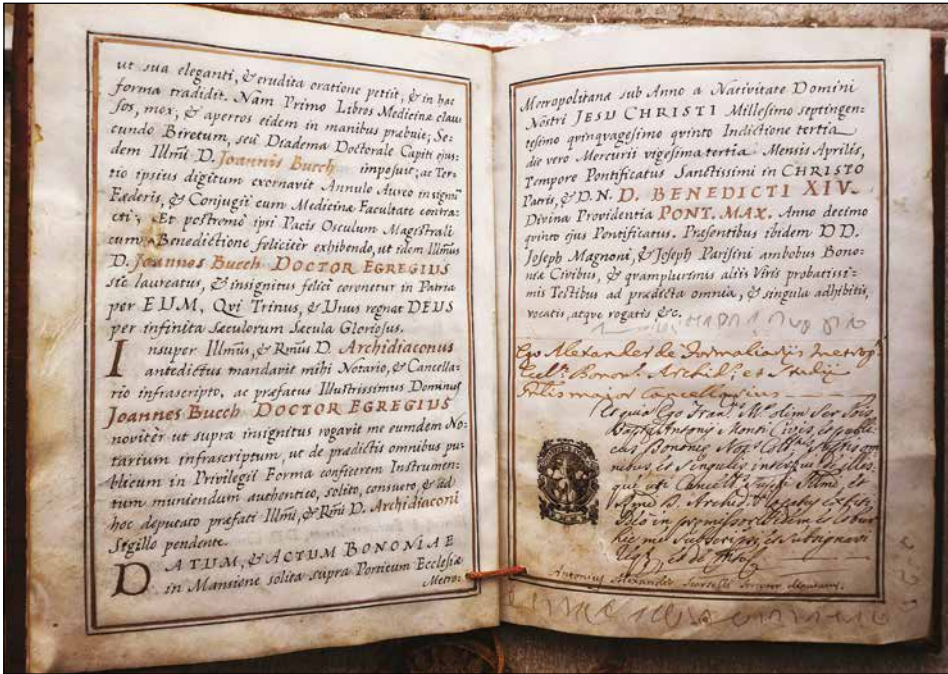 ut sua eleganti, & erudita oratione petiit, & in hac
forma tradidit. Nam Primo Libros Medicinæ clau=
sos, mox, & apertos eidem in manibus præbuit; Se=
cundo Biretum, seù Diadema Doctorale Capiti ejus=
dem Illmi D. Joannis Bucch imposuit; ac Ter=
tio ipsius digitum exornavit Annulo Aureo in signũ
Fæderis, & Conjugii cum Medicinæ Facultate contra=
cti; Et postremò ipsi Pacis Osculum Magistrali
cum Benedictione felicitèr exhibendo, ut idem Illm̃us
D. Joannes Bucch DOCTOR EGREGIUS
sic laureatus, & insignitus felici coronetur in Patria
per EUM, Qui Trinus, & Unus regnat DEUS
per infinita Sæculorum Sæcula Gloriosus.
Insuper Illm̃us, & Rm̃us D. Archidiaconus
antedictus mandavit mihi Notario, & Cancella=
rio infrascripto, ac præfatus Illustrissimus Dominus
Joannes Bucch DOCTOR EGREGIUS
novitèr ut supra insignitus rogavit me eumdem No=
tarium infrascriptum, ut de prædictis omnibus pu=
blicum in Privilegii Forma conficerem Instrumen=
tum muniendum authentico, solito, consueto, & ad
hoc deputato præfati Illm̃i, & Rm̃i D. Archidiaconi
Sigillo pendente.
DATUM, & ACTUM BONONIAE
in Mansione solita supra Porticum Ecclesiæ
Metro=
Metropolitana sub Anno a Nativitate Domini
Nostri JESU CHRISTI Millesimo septingen=
tesimo qvinqvagesimo qvinto Indictione tertia
die vero Mercurii vigesima tertia Mensis Aprilis,
Tempore Pontificatus Sanctissimi in CHRISTO
Patris, & D.N. D. BENEDICTI XIV.
Divina Providentia PONT. MAX. Anno decimo
qvinto ejus Pontificatus. Præsentibus ibidem DD.
Joseph Magnoni, & Joseph Parisini ambobus Bono=
niæ Civibus, & qvamplurimis aliis Viris probatissi=
mis Testibus ad prædicta omnia, & singula adhibitis,
vocatis, atqve rogatis &c.
Ego Alexander de
Archid.
maior Cancellarius
Ego
Civis
Bononie
omnibus, et singulis
Antonius Alexander Scriptor